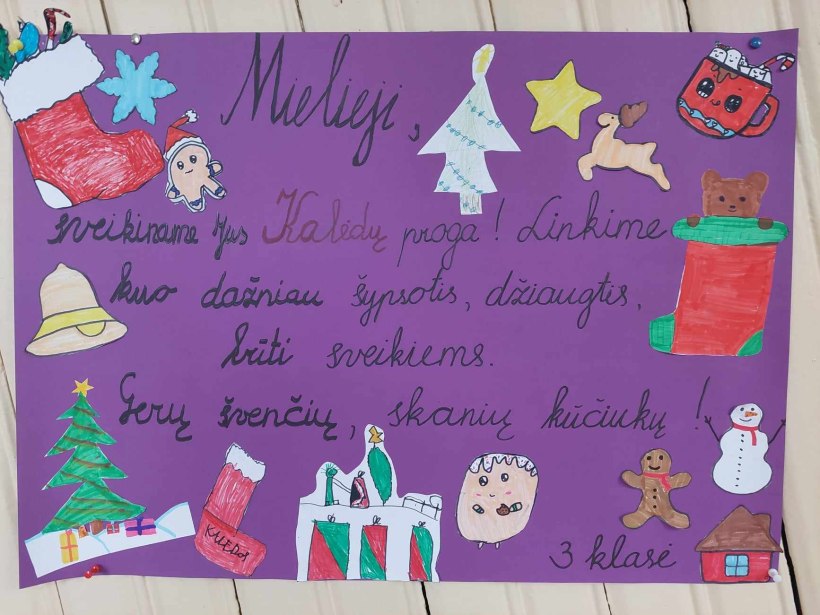 Mielieji,
sveikiname Jus Kalėdų proga! Linkime
kuo dažniau šypsotis, džiaugtis,
būti sveikiems.
Gerų švenčių, skanių kūčiukų!
KALĖDOS
3 klasė